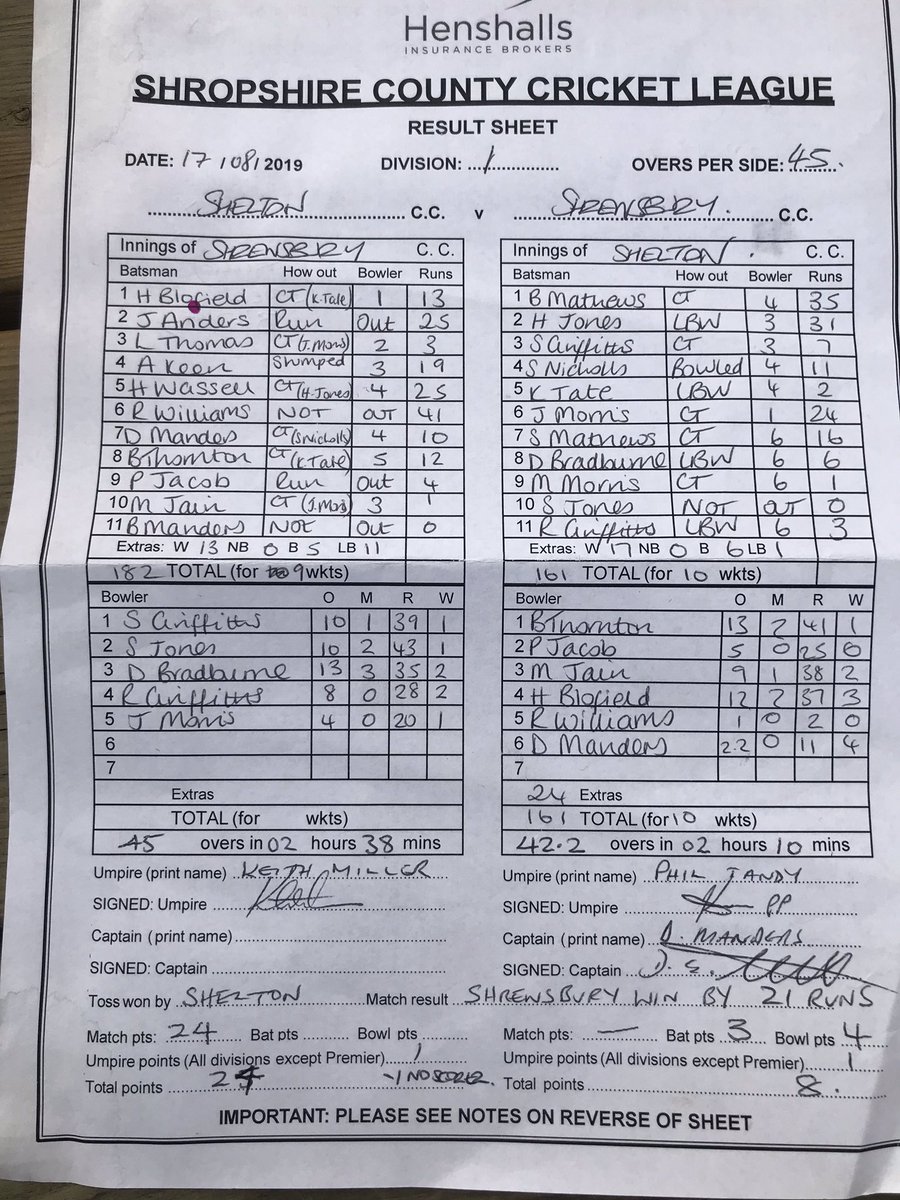 Henshalls
INSURANCE BROKERS
SHROPSHIRE COUNTY CRICKET LEAGUE
RESULT SHEET
DATE: 17/08/2019 DIVISION: 1 OVERS PER SIDE: 45.
SHELTON C.C. v SHREWSBURY. C.C.
Innings of SHREWSBURY C. C.
Batsman How out Bowler Runs
1 H Blofield CT (K.Tate) 1 13
2 J Anders Run Out 25
3 L Thomas CT (J.Morris) 2 3
4 A Keen Stumped 3 19
5 H Wassell CT (H.Jones) 4 25
6 R Williams NOT OUT 41
7 D Manders CT (S Nicholls) 4 10
8 B Thornton CT (K.Tate) 5 12
9 P Jacob Run Out 4
10 M Jain CT (J.Morris) 3 1
11 B Manders NOT Out 0
Extras: W 13 NB 0 B 5 LB 11
182 TOTAL (for 9 wkts)
Bowler O M R W
1 S Griffiths 10 1 39 1
2 S Jones 10 2 43 1
3 D Bradburne 13 3 35 2
4 R Griffiths 8 0 28 2
5 J Morris 4 0 20 1
6
7
Extras
TOTAL (for wkts)
45 overs in 02 hours 38 mins
Innings of SHELTON. C. C.
Batsman How out Bowler Runs
1 B Mathews CT 4 35
2 H Jones LBW 3 31
3 S Griffiths CT 3 7
4 S Nicholls Bowled 4 11
5 K Tate LBW 4 2
6 J Morris CT 1 24
7 S Mathews CT 6 16
8 D Bradburne LBW 6 6
9 M Morris CT 6 1
10 S Jones NOT OUT 0
11 R Griffiths LBW 6 3
Extras: W 17 NB 0 B 6 LB 1
161 TOTAL (for 10 wkts)
Bowler O M R W
1 B Thornton 13 2 41 1
2 P Jacob 5 0 25 0
3 M Jain 9 1 38 2
4 H Blofield 12 2 37 3
5 R Williams 1 0 2 0
6 D Manders 2.2 0 11 4
7
24 Extras
161 TOTAL (for 10 wkts)
42.2 overs in 02 hours 10 mins
Umpire (print name) KEITH MILLER
SIGNED: Umpire
Captain (print name)
SIGNED: Captain
Umpire (print name) PHIL TANDY
SIGNED: Umpire PP
Captain (print name) D. MANDERS
SIGNED: Captain
Toss won by SHELTON Match result SHREWSBURY WIN BY 21 RUNS
Match pts: 24 Bat pts Bowl pts
Umpire points (All divisions except Premier) 1
Total points 24 -1 NO SCORER.
Match pts: — Bat pts 3 Bowl pts 4
Umpire points (All divisions except Premier) 1
Total points 8.
IMPORTANT: PLEASE SEE NOTES ON REVERSE OF SHEET